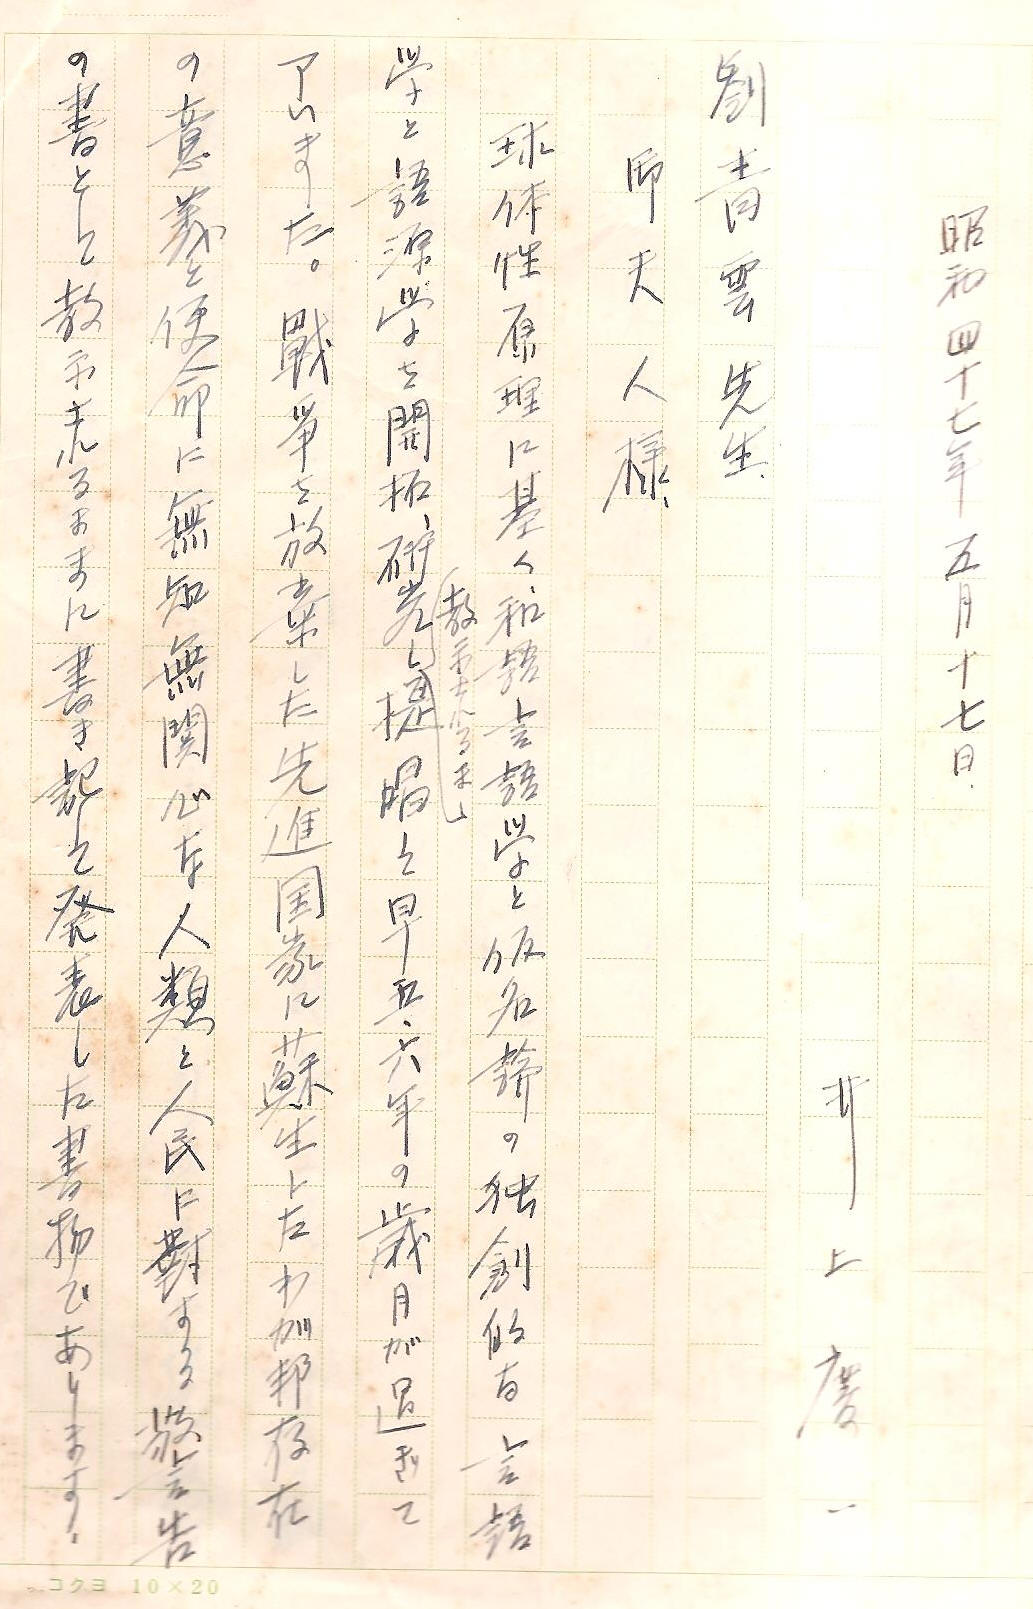 昭和四十七年五月十七日.
井上慶一
劉青雲先生.
御夫人様.
球体性原理に基く、和語言語学と仮名韻の独創的な言語
教示去れるまし
学と語源学を開拓、研究し提唱して早五、六年の歳月が過ぎて
了いました。戦争を放棄した先進国家に蘇生したわが邦存在
の意義と使命に無知無関心な人類と人民に対する警告
の書として教示来るまゝに書き起して発表した書物であります.
コクヨ 10×20